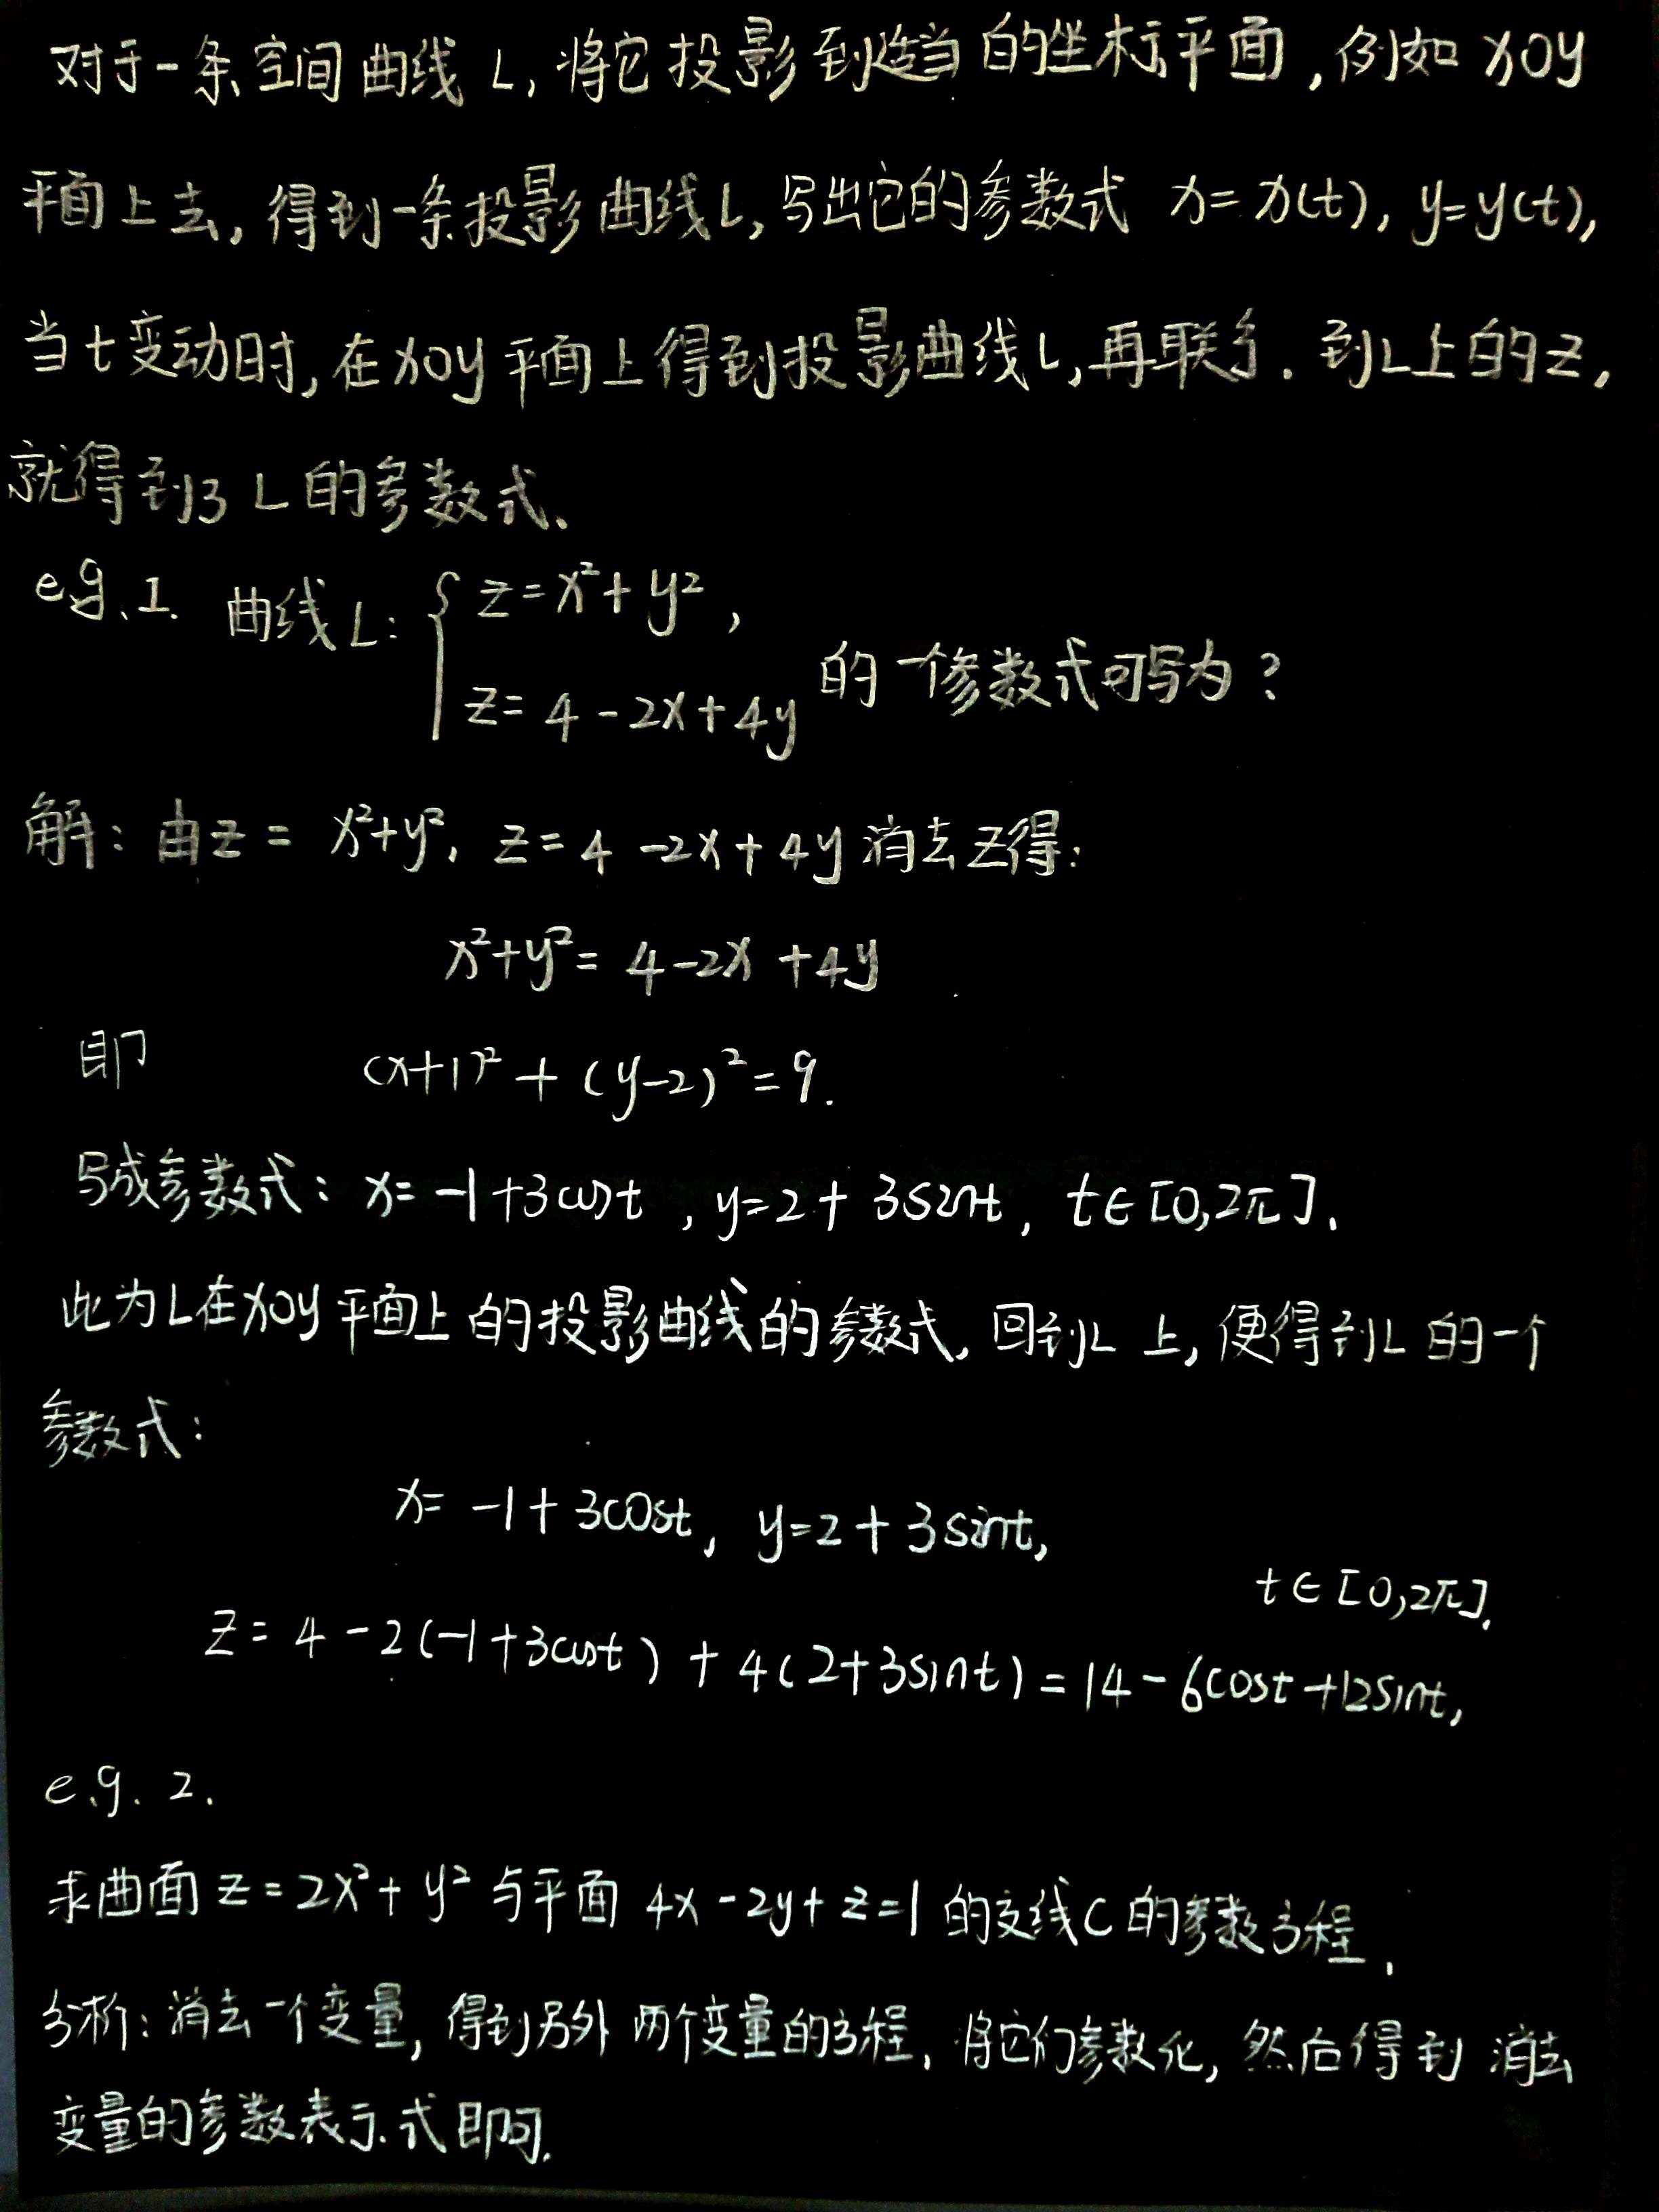 对于一条空间曲线 L, 将它投影到适当的坐标平面, 例如 xOy
平面上去, 得到一条投影曲线L, 写出它的参数式 x=x(t), y=y(t),
当t变动时, 在xoy平面上得到投影曲线L, 再联系. 到L上的z,
就得到了L的参数式、
e.g.1. 曲线L: { z=x²+y²,
z=4-2x+4y 的一个参数式可写为?
解: 由z= x²+y², z=4-2x+4y 消去z得:
x²+y²= 4-2x+4y
即 (x+1)²+(y-2)²=9.
写成参数式: x=-1+3cost, y=2+3sint, t∈[0,2π].
此为L在xoy平面上的投影曲线的参数式, 回到L上, 便得到L的一个
参数式:
x= -1+3cost, y=2+3sint,
t∈[0,2π].
z=4-2(-1+3cost)+4(2+3sint)=14-6cost+12sint,
e.g. 2.
求曲面 z=2x²+y² 与平面 4x-2y+z=1 的交线C的参数方程.
分析: 消去一个变量, 得到另外两个变量的方程, 将它们参数化, 然后得到消去
变量的参数表示式即可.